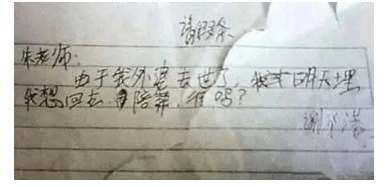 请假条
朱老师:
由于我外婆去世了,明天埋
我想回去陪葬,准吗?
谢